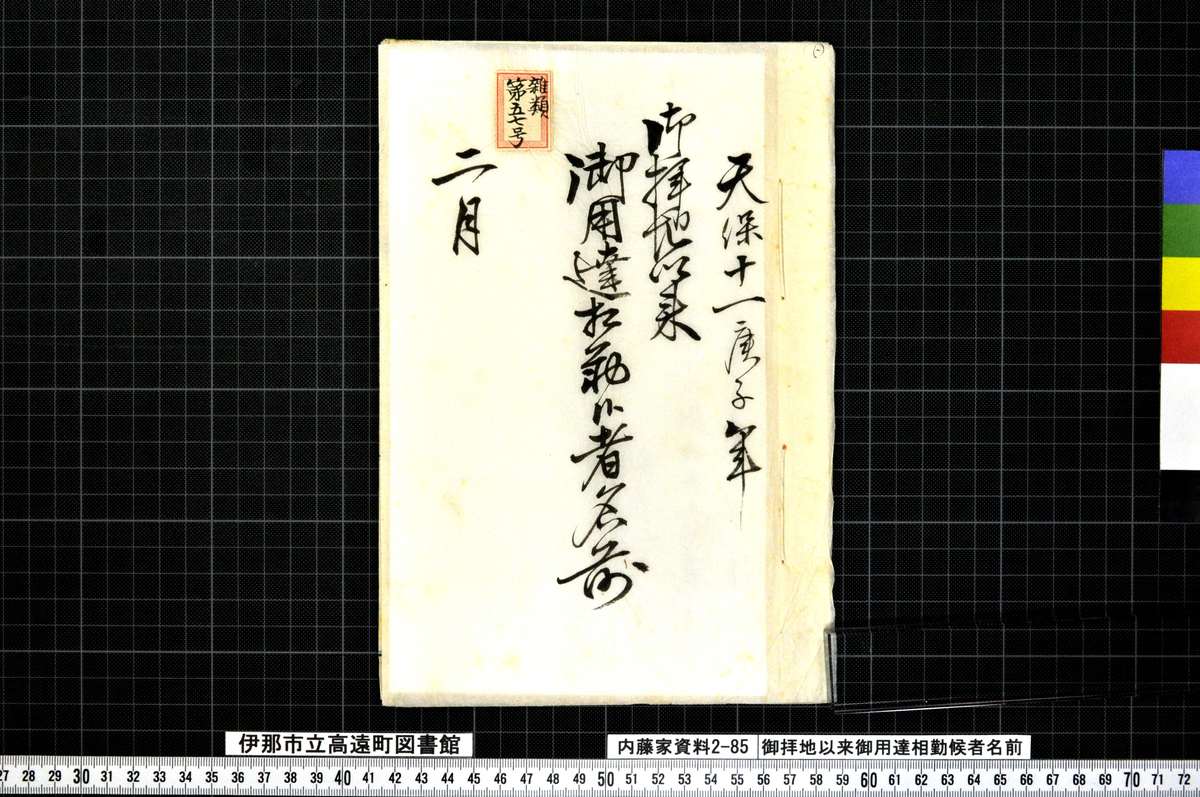 天保十一庚子年
御拝地以来
御用達相勤候者名前
二月
雑類
第五七号
伊那市立高遠町図書館
内藤家資料2-85
御拝地以来御用達相勤候者名前
27 28 29 30 31 32 33 34 35 36 37 38 39 40 41 42 43 44 45 46 47 48 49 50 51 52 53 54 55 56 57 58 59 60 61 62 63 64 65 66 67 68 69 70 71 72